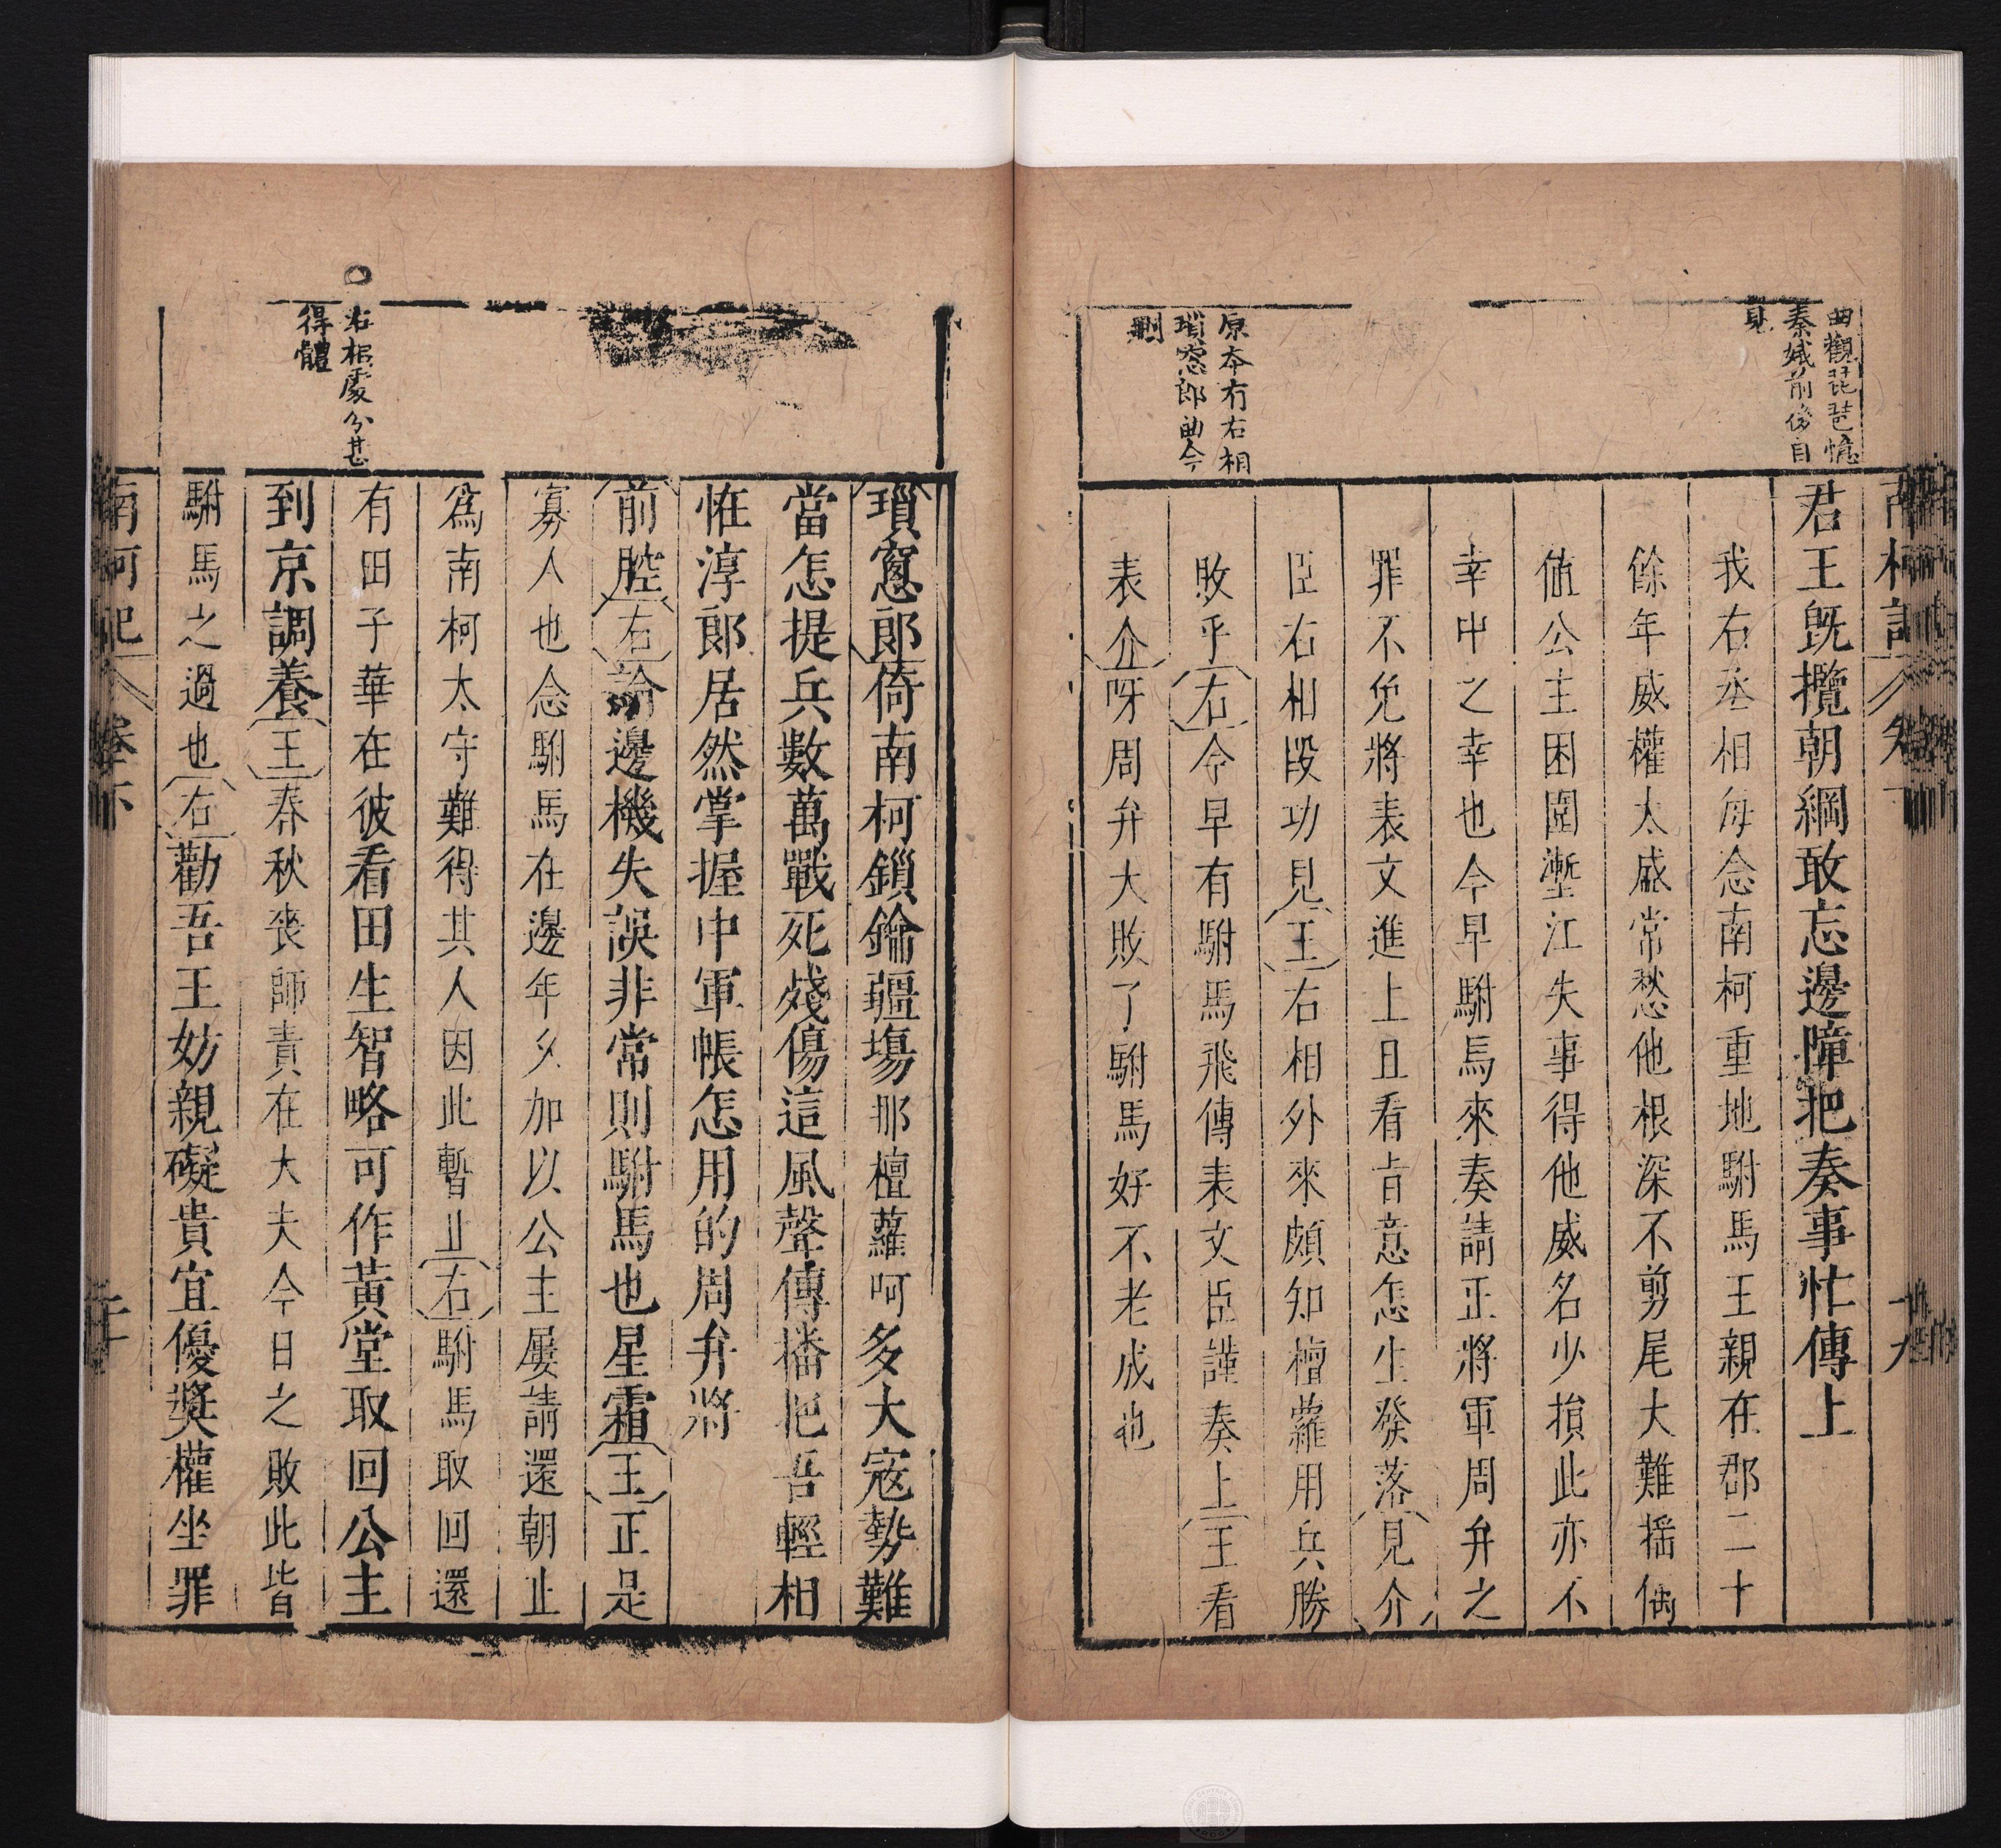 南柯記 卷下 十九
曲觀琵琶憶
秦娥前後自
見
原本有右相
瑣窓郎曲今
刪
君王旣攬朝綱敢忘邊障把奏事忙傳上
我右丞相每念南柯重地駙馬王親在郡二十
餘年威權太盛常愁他根深不剪尾大難搖偶
値公主困圍壍江失事得他威名少損此亦不
幸中之幸也今早駙馬來奏請正將軍周弁之
罪不免將表文進上且看旨意怎生發落見介
臣右相段功見王右相外來頗知檀蘿用兵勝
敗乎右今早有駙馬飛傳表文臣謹奏上王看
表介呀周弁大敗了駙馬好不老成也
右相處分甚
得體
瑣窓郎倚南柯鎻鑰疆塲那檀蘿呵多大宼勢難
當怎提兵數萬戰死殘傷這風聲傳播把吾輕相
恠淳郞居然掌握中軍帳怎用的周弁將
前腔右論邊機失誤非常則駙馬也星霜王正是
寡人也念駙馬在邊年久加以公主屢請還朝止
爲南柯太守難得其人因此暫止右駙馬取回還
有田子華在彼看田生智略可作黃堂取回公主
到京調養王春秋丧師責在大夫今日之敗此皆
駙馬之過也右勸吾王妨親礙貴宜優奬權坐罪
南柯記 卷下 二十